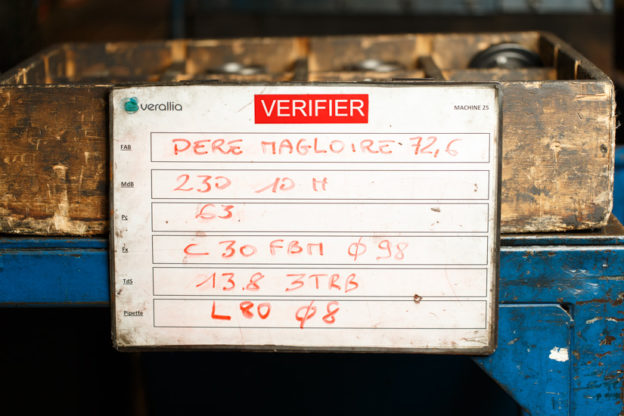 verallia VERIFIER MACHINE 25
FAB PERE MAGLOIRE 72,6
MdB 230 10 M
Pc 63
Fx C 30 FBM Φ 98
TdS 13.8 3TRB
Pipette L80 Φ8